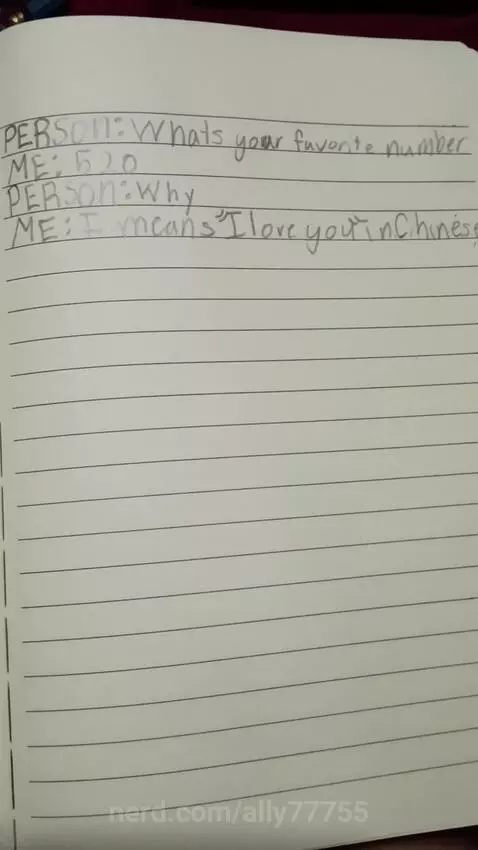 PERSON: Whats your favorite number
ME: 520
PERSON: Why
ME: I means "I love you" in Chinese
nerd.com/ally77755